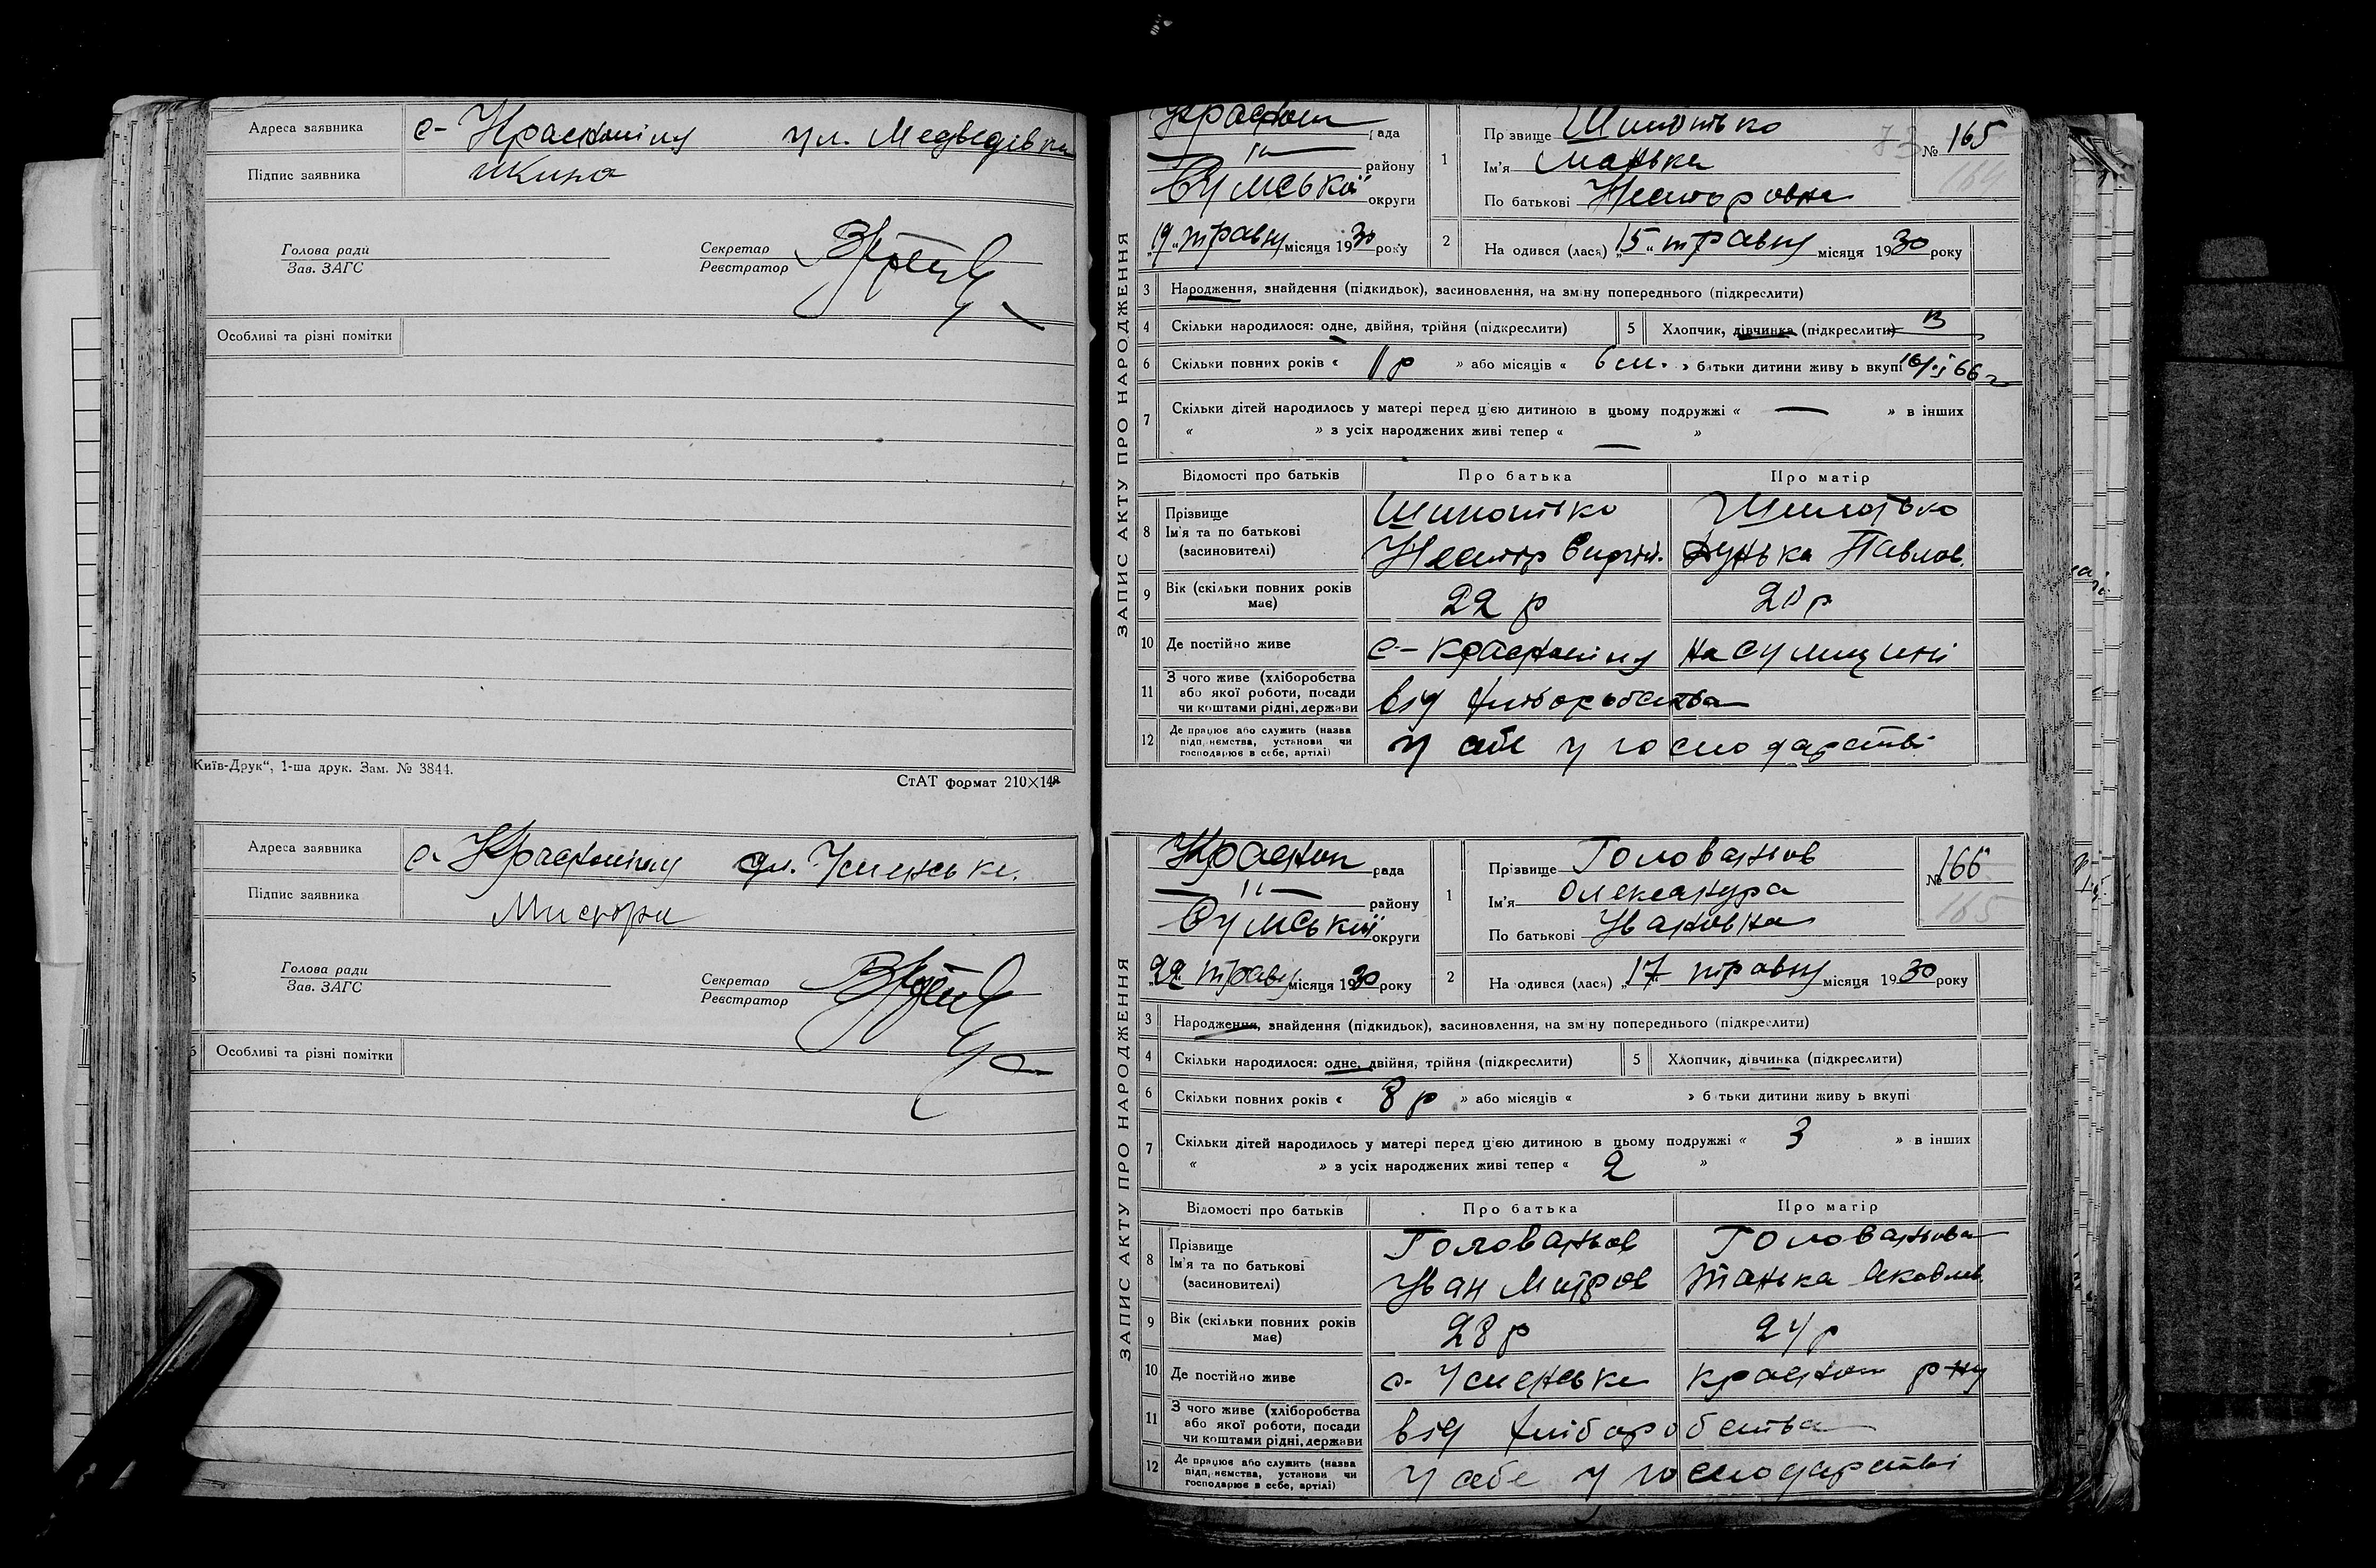 Адреса заявника с- Краснопілля ул. Медведівка
Підпис заявника
Голова ради
Зав. ЗАГС
Секретар
Реєстратор
Особливі та різні помітки
Київ-Друк“, 1-ша друк. Зам. № 3844.
СтАТ формат 210×148
Адреса заявника с- Краснопілля
Підпис заявника
Голова ради
Зав. ЗАГС
Секретар
Реєстратор
Особливі та різні помітки
ЗАПИС АКТУ ПРО НАРОДЖЕННЯ
Красноп рада
району
Сумської округи
„19„ травня місяця 1930 року
1 Прізвище
Ім'я Манька
По батькові Несторовна
73 № 165
164
2 На одився (лася) „15“ травня місяця 1930 року
3 Народження, знайдення (підкидьок), засиновлення, на зміну попереднього (підкреслити)
4 Скільки народилося: одне, двійня, трійня (підкреслити)
5 Хлопчик, дівчинка (підкреслити)
6 Скільки повних років « 1 р » або місяців « 6 м. » батьки дитини живу ь вкупі
7 Скільки дітей народилось у матері перед цією дитиною в цьому подружжі « — » в інших
« » з усіх народжених живі тепер « — »
Відомості про батьків Про батька Про матір
8 Прізвище
Ім'я та по батькові
(засиновителі)
Нестор Дунька Павлов.
9 Вік (скільки повних років має) 22 р 20 р
10 Де постійно живе с- Краснопілля на Сумщині
11 З чого живе (хліборобства
або якої роботи, посади
чи коштами рідні, держави
від хліборобства
12 Де працює або служить (назва
підприємства, установи чи
господарює в себе, артілі)
у себе у господарстві
ЗАПИС АКТУ ПРО НАРОДЖЕННЯ
Красноп рада
району
Сумської округи
„22„ травня місяця 1930 року
1 Прізвище Голованьов
Ім'я Олександра
По батькові Ивановна
№ 166
165
2 На одився (лася) „17“ травня місяця 1930 року
3 Народження, знайдення (підкидьок), засиновлення, на зміну попереднього (підкреслити)
4 Скільки народилося: одне, двійня, трійня (підкреслити)
5 Хлопчик, дівчинка (підкреслити)
6 Скільки повних років « 8 р » або місяців « » батьки дитини живу ь вкупі
7 Скільки дітей народилось у матері перед цією дитиною в цьому подружжі « 3 » в інших
« » з усіх народжених живі тепер « 2 »
Відомості про батьків Про батька Про матір
8 Прізвище
Ім'я та по батькові
(засиновителі)
Голованьов Голованьова
Иван Митров Танька Яковлев.
9 Вік (скільки повних років має) 28 р 24 р
10 Де постійно живе Красноп р-ну
11 З чого живе (хліборобства
або якої роботи, посади
чи коштами рідні, держави
від хліборобства
12 Де працює або служить (назва
підприємства, установи чи
господарює в себе, артілі)
у себе у господарстві